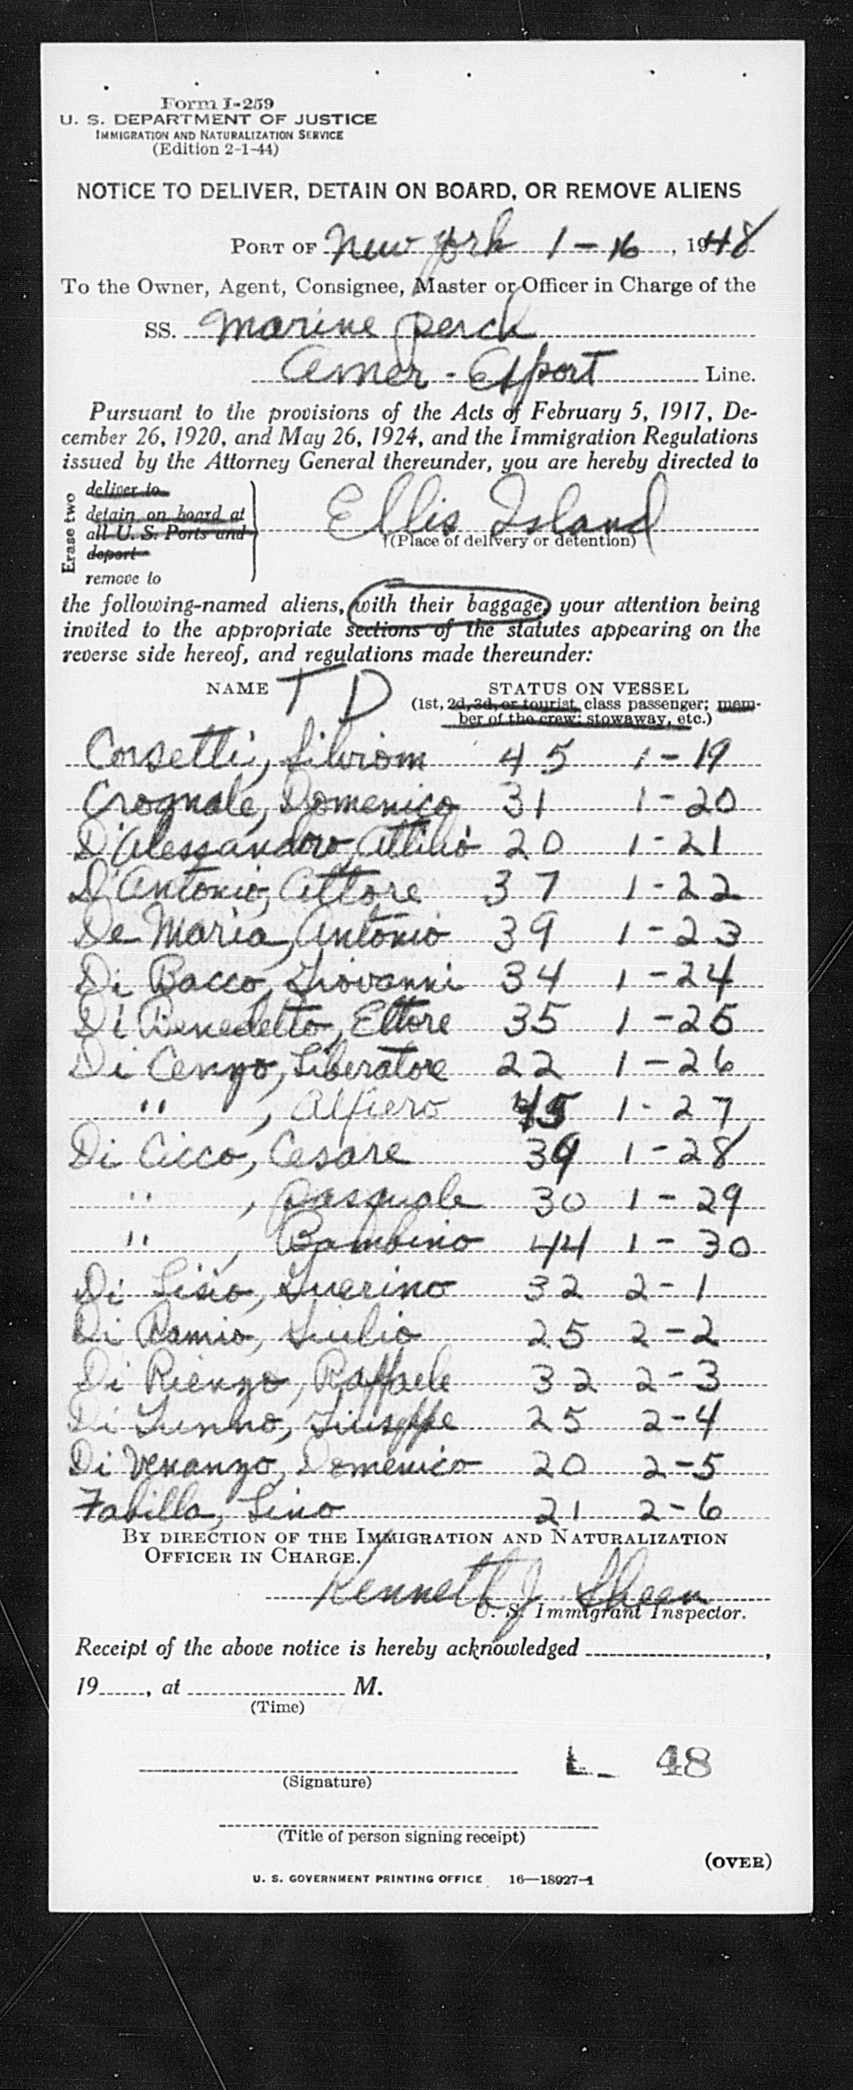 Form I-259
U. S. DEPARTMENT OF JUSTICE
IMMIGRATION AND NATURALIZATION SERVICE
(Edition 2-1-44)
NOTICE TO DELIVER, DETAIN ON BOARD, OR REMOVE ALIENS
PORT OF New York 1-16, 1948
To the Owner, Agent, Consignee, Master or Officer in Charge of the
SS. Marine Perch
Amer-Export Line.
Pursuant to the provisions of the Acts of February 5, 1917, De-
cember 26, 1920, and May 26, 1924, and the Immigration Regulations
issued by the Attorney General thereunder, you are hereby directed to
Erase two
deliver to
detain on board at
all U. S. Ports and
deport
remove to
Ellis Island
(Place of delivery or detention)
the following-named aliens, with their baggage, your attention being
invited to the appropriate sections of the statutes appearing on the
reverse side hereof, and regulations made thereunder:
NAME T D STATUS ON VESSEL
(1st, 2d, 3d, or tourist class passenger; mem-
ber of the crew; stowaway, etc.)
Corsetti, 45 1-19
Crognale, Domenico 31 1-20
D'Alessandro, Attilio 20 1-21
D'Antonio, Attore 37 1-22
De Maria, Antonio 39 1-23
Di Bacco, Giovanni 34 1-24
Di Benedetto, Ettore 35 1-25
Di Cenzo, Liberatore 22 1-26
" , Alfiero 45 1-27
Di Cicco, Cesare 39 1-28
" , Pasquale 30 1-29
" , Bambino 44 1-30
Di Lisio, Guerino 32 2-1
Di Ramio, Giulio 25 2-2
Di Rienzo, Raffaele 32 2-3
Di Tunno, Giuseppe 25 2-4
Di Venanzo, Domenico 20 2-5
Fabilla, Lino 21 2-6
BY DIRECTION OF THE IMMIGRATION AND NATURALIZATION
OFFICER IN CHARGE.
Kenneth J. Sheen
U. S. Immigrant Inspector.
Receipt of the above notice is hereby acknowledged ,
19 , at M.
(Time)
48
(Signature)
(Title of person signing receipt)
(OVER)
U. S. GOVERNMENT PRINTING OFFICE 16—18927-1